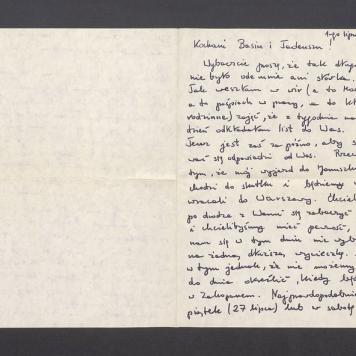 1-go lipca
Kochani Basiu i Tadeuszu!
Wybaczcie proszę, że tak długo
nie było ode mnie ani słówka.
Jak weszłam w wir (a to
a to pośpiech w pracy, a to
rodzinne) zajęć, że z tygodnia na
dzień odkładałam list do Was.
Teraz jest zaś za późno, aby
wać się odpowiedzi od Was.
tym, że mój wyjazd do
chodzi do skutku i będziemy
wracali do Warszawy.
po drodze z Wami się zobaczyć
i chcielibyśmy mieć pewność,
nam się w tym dniu nie
na żadną dłuższą wycieczkę.
w tym jednak, że nie możemy
do dnia określić, kiedy
w Zakopanem. Najprawdopodobniej
piątek (27 lipca) lub w sobotę